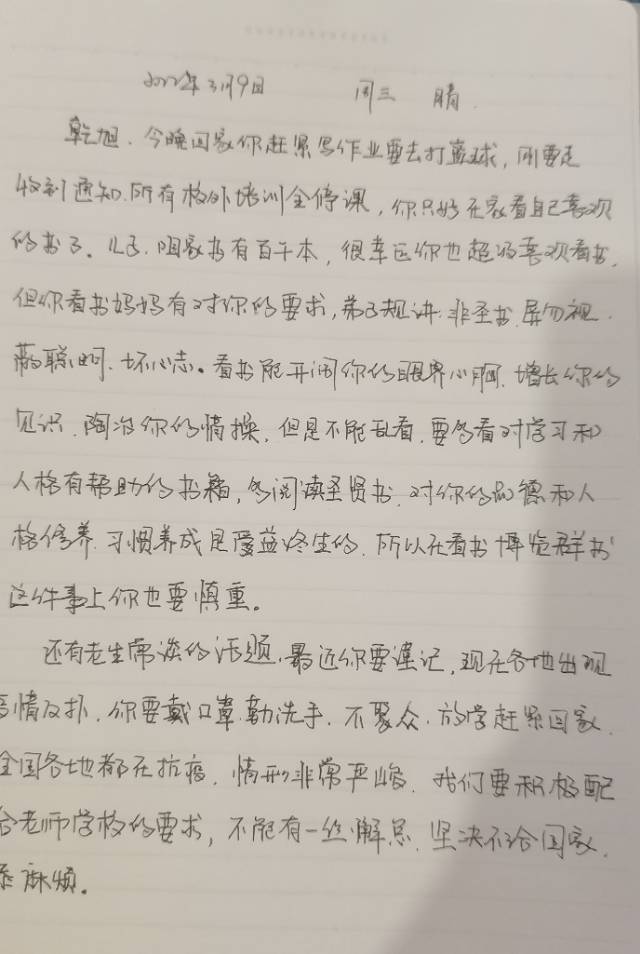 2022年3月9日 周三 晴.
乾旭、今晚回家你赶紧写作业要去打蓝球,刚要走
收到通知.所有校外培训全停课,你只好在家看自己喜欢
的书了。儿子.咱家书有百千本,很幸运你也超级喜欢看书,
但你看书妈妈有对你的要求,弟子规讲:非圣书.屏勿视.
蔽聪明.坏心志。看书能开阔你的眼界心胸.增长你的
见识.陶冶你的情操.但是不能乱看.要多看对学习和
人格有帮助的书籍,多阅读圣贤书.对你的品德和人
格修养.习惯养成是受益终生的.所以在看书博览群书
这件事上你也要慎重。
还有老生常谈的话题.最近你要谨记.现在各地出现
疫情反扑.你要戴口罩.勤洗手.不聚众.放学赶紧回家.
全国各地都在抗疫.情形非常严峻.我们要积极配
合老师学校的要求,不能有一丝懈怠.坚决不给国家.
添麻烦。